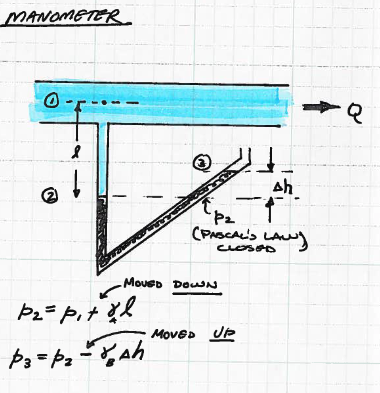 MANOMETER
①
Q
l
③
②
Δh
p₂
(PASCAL'S LAW)
CLOSED
MOVED DOWN
p₂ = p₁ + γ_A l
MOVED UP
p₃ = p₂ − γ_B Δh